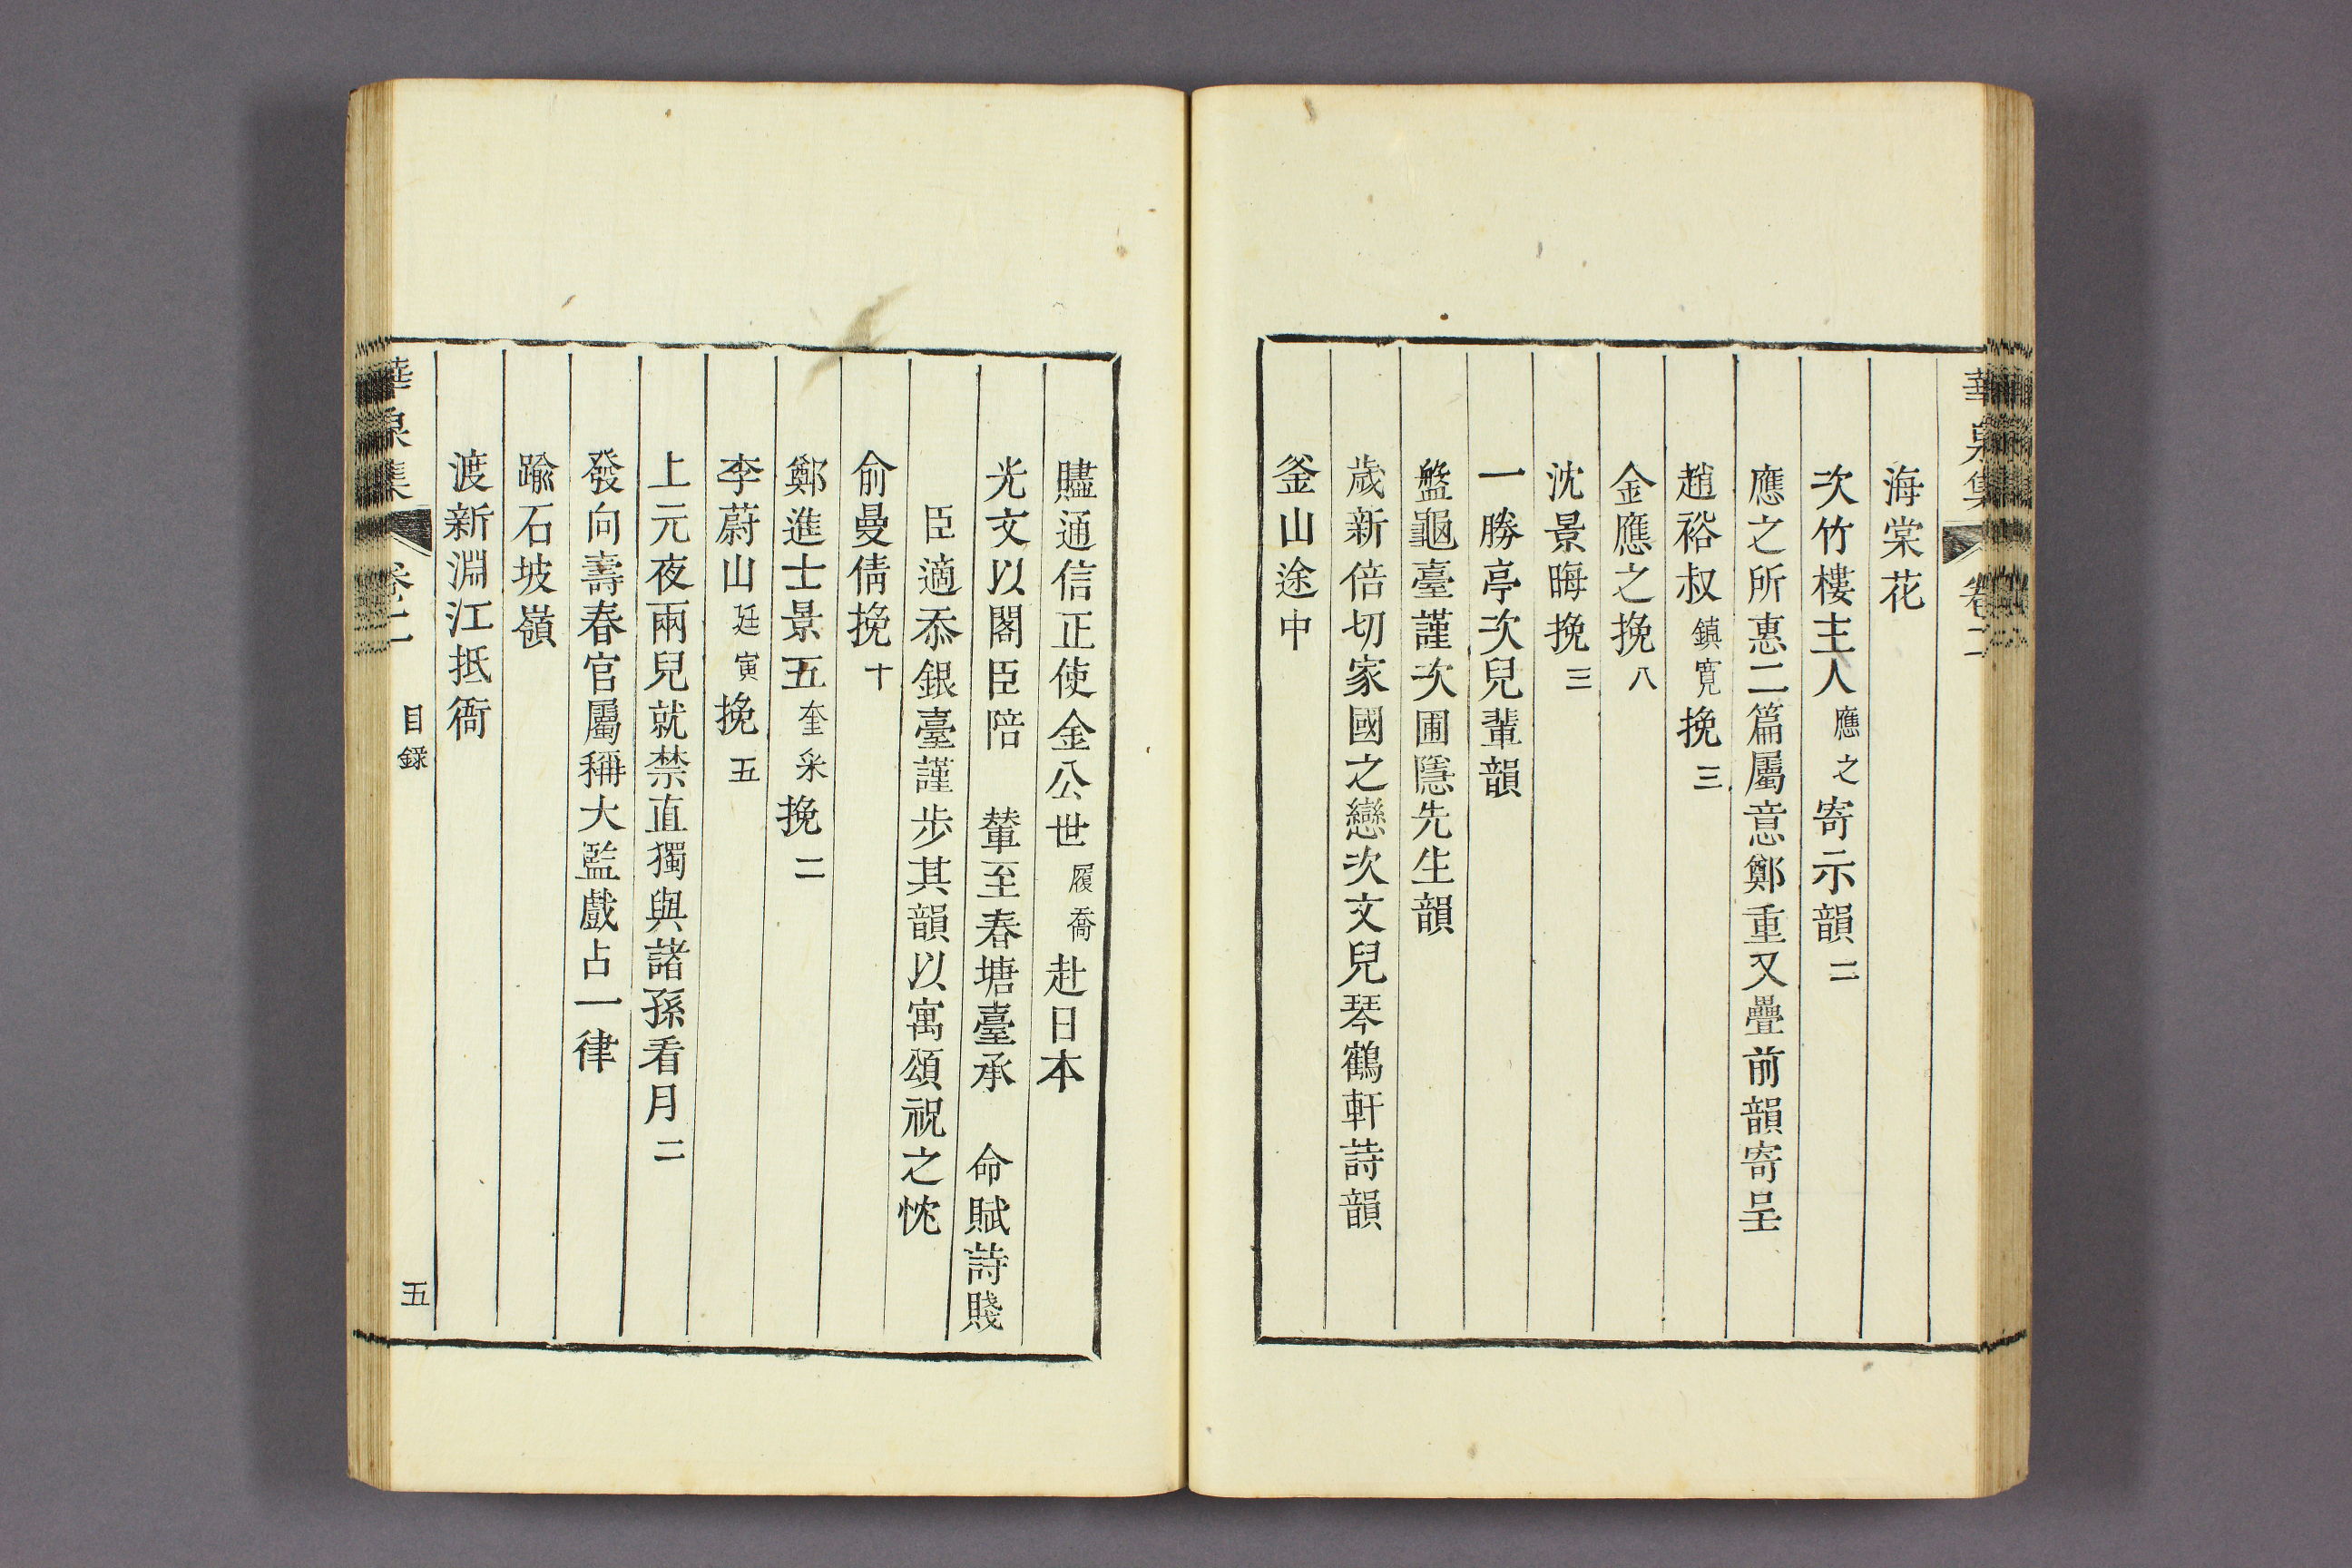 華泉集 卷二
海棠花
次竹樓主人應之寄示韻二
應之所惠二篇屬意鄭重又疊前韻寄呈
趙裕叔鎮寬挽三
金應之挽八
沈景晦挽三
一勝亭次兒輩韻
盤龜臺謹次圃隱先生韻
歲新倍切家國之戀次文兒琴鶴軒詩韻
釜山途中
贐通信正使金公世履喬赴日本
光文以閣臣陪 輦至春塘臺承 命賦詩賤
臣適忝銀臺謹步其韻以寓頌祝之忱
俞曼倩挽十
鄭進士景五奎采挽二
李蔚山廷寅挽五
上元夜兩兒就禁直獨與諸孫看月二
發向壽春官屬稱大監戲占一律
踰石坡嶺
渡新淵江抵衙
華泉集 卷二 目錄 五